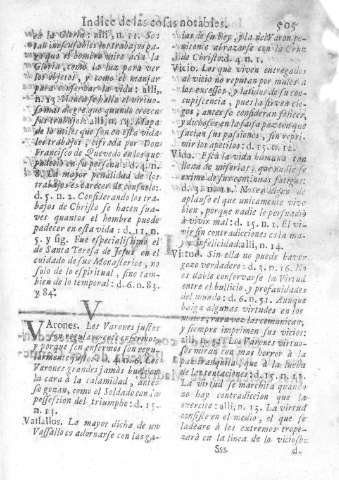 Indice de las cosas notables. 505
ver la Gloria: alli, n. 11. So
para
que el hombre mire acia la
Gloria, como la luz para ver
los objetos, y como el manjar
para conservar la vida: alli,
n. 13. Nunca se halla el virtuo-
so mas alegre que quando crecen
sus trabajos: alli, n. 14. Mapa
de lo mas que son en esta vida
los trabajos, cifrada por Don
Francisco de Quevedo en los que
padeciò en su persona: d. 4. n.
8. La mayor penalidad de los
trabajos es carecer de consuelo:
d. 5. n. 1. Considerando los tra-
bajos de Christo se hacen sua-
ves quantos el hombre puede
padecer en esta vida: d. 11. n.
5. y sig. Fue especialissimo el
de Santa Teresa de Jesus en el
cuidado de sus Monasterios, no
solo de lo espiritual, sino tam-
bien de lo temporal: d. 6. n. 83.
y 84.
V
VArones. Los Varones justos
y porque son enfermos
Los
Varones grandes jamàs buelven
la cara à la calamidad, antes
se gozan, como el Soldado con la
possession del triumpho: d. 15.
n. 13.
Vassallos. La mayor dicha de un
Vassallo es adornarse con las ga-
las de su Rey, y la del Varon re-
ligioso abrazarse con la Cruz
de Christo: d. 4. n. 1.
Vicio. Los que viven entregados
al vicio no reputan por males à
los excessos, y latidos de su con-
cupiscencia, pues la sirven cie-
gos, antes se consideran felices,
y dichosos en la falsa paz con que
sacian sus passiones, sin repri-
mir los apetitos: d. 15. n. 12.
Vida. Està la vida humana tan
llena de miserias, que nadie se
exime de sus continuas fatigas:
d. 3. n. 1. No es digno de
aplauso el que unicamente vive
bien, porque nadie le persuade
à vivir mal: d. 15. n. 1. El
vivir sin contradiciones es la ma-
yor infelicidad: alli, n. 14.
Virtud. Sin ella no puede haver
gozo verdadero: d. 3. n. 16. No
es dable conservar la virtud
entre el bullicio, y profanidades
del mundo: d. 6. n. 51. Aunque
haiga algunas virtudes en los
malos, rara vez las comunican,
y siempre imprimen sus vicios:
alli, n. Los Varones virtuo-
sos miran con mas horror à la
paz tranquila, que à la lucha
de las tentaciones: d. 15. n. 12.
La virtud se marchita quando
no hay contradicion que la
exercite: alli, n. 15. La virtud
consiste en el medio, el que se
ladeare à los extremos trope-
zarà en la linea de lo vicioso:
Sss. d.